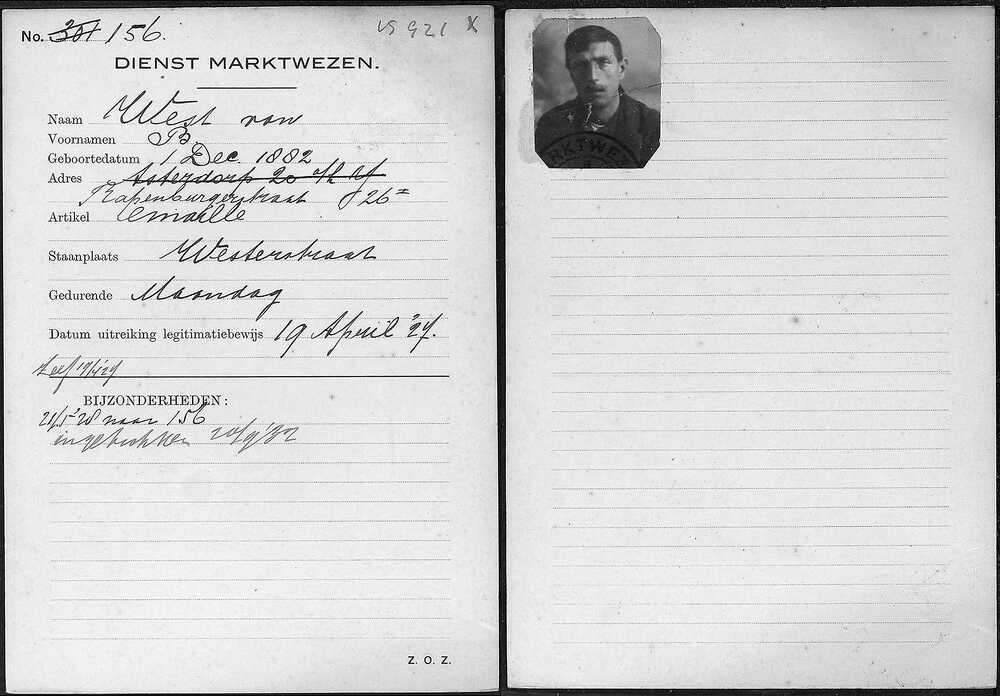 No. 301 156.
VS 921 X
DIENST MARKTWEZEN.
Naam West van
Voornamen B
Geboortedatum 1 Dec. 1882
Adres Asterdorp 20
Rapenburgerstraat 26
Artikel Emaille
Staanplaats Westerstraat
Gedurende Maandag
Datum uitreiking legitimatiebewijs 19 April '27.
BIJZONDERHEDEN:
21/5 '28 naar 156
ingetrokken 20/9/32
Z. O. Z.
MARKTWEZEN